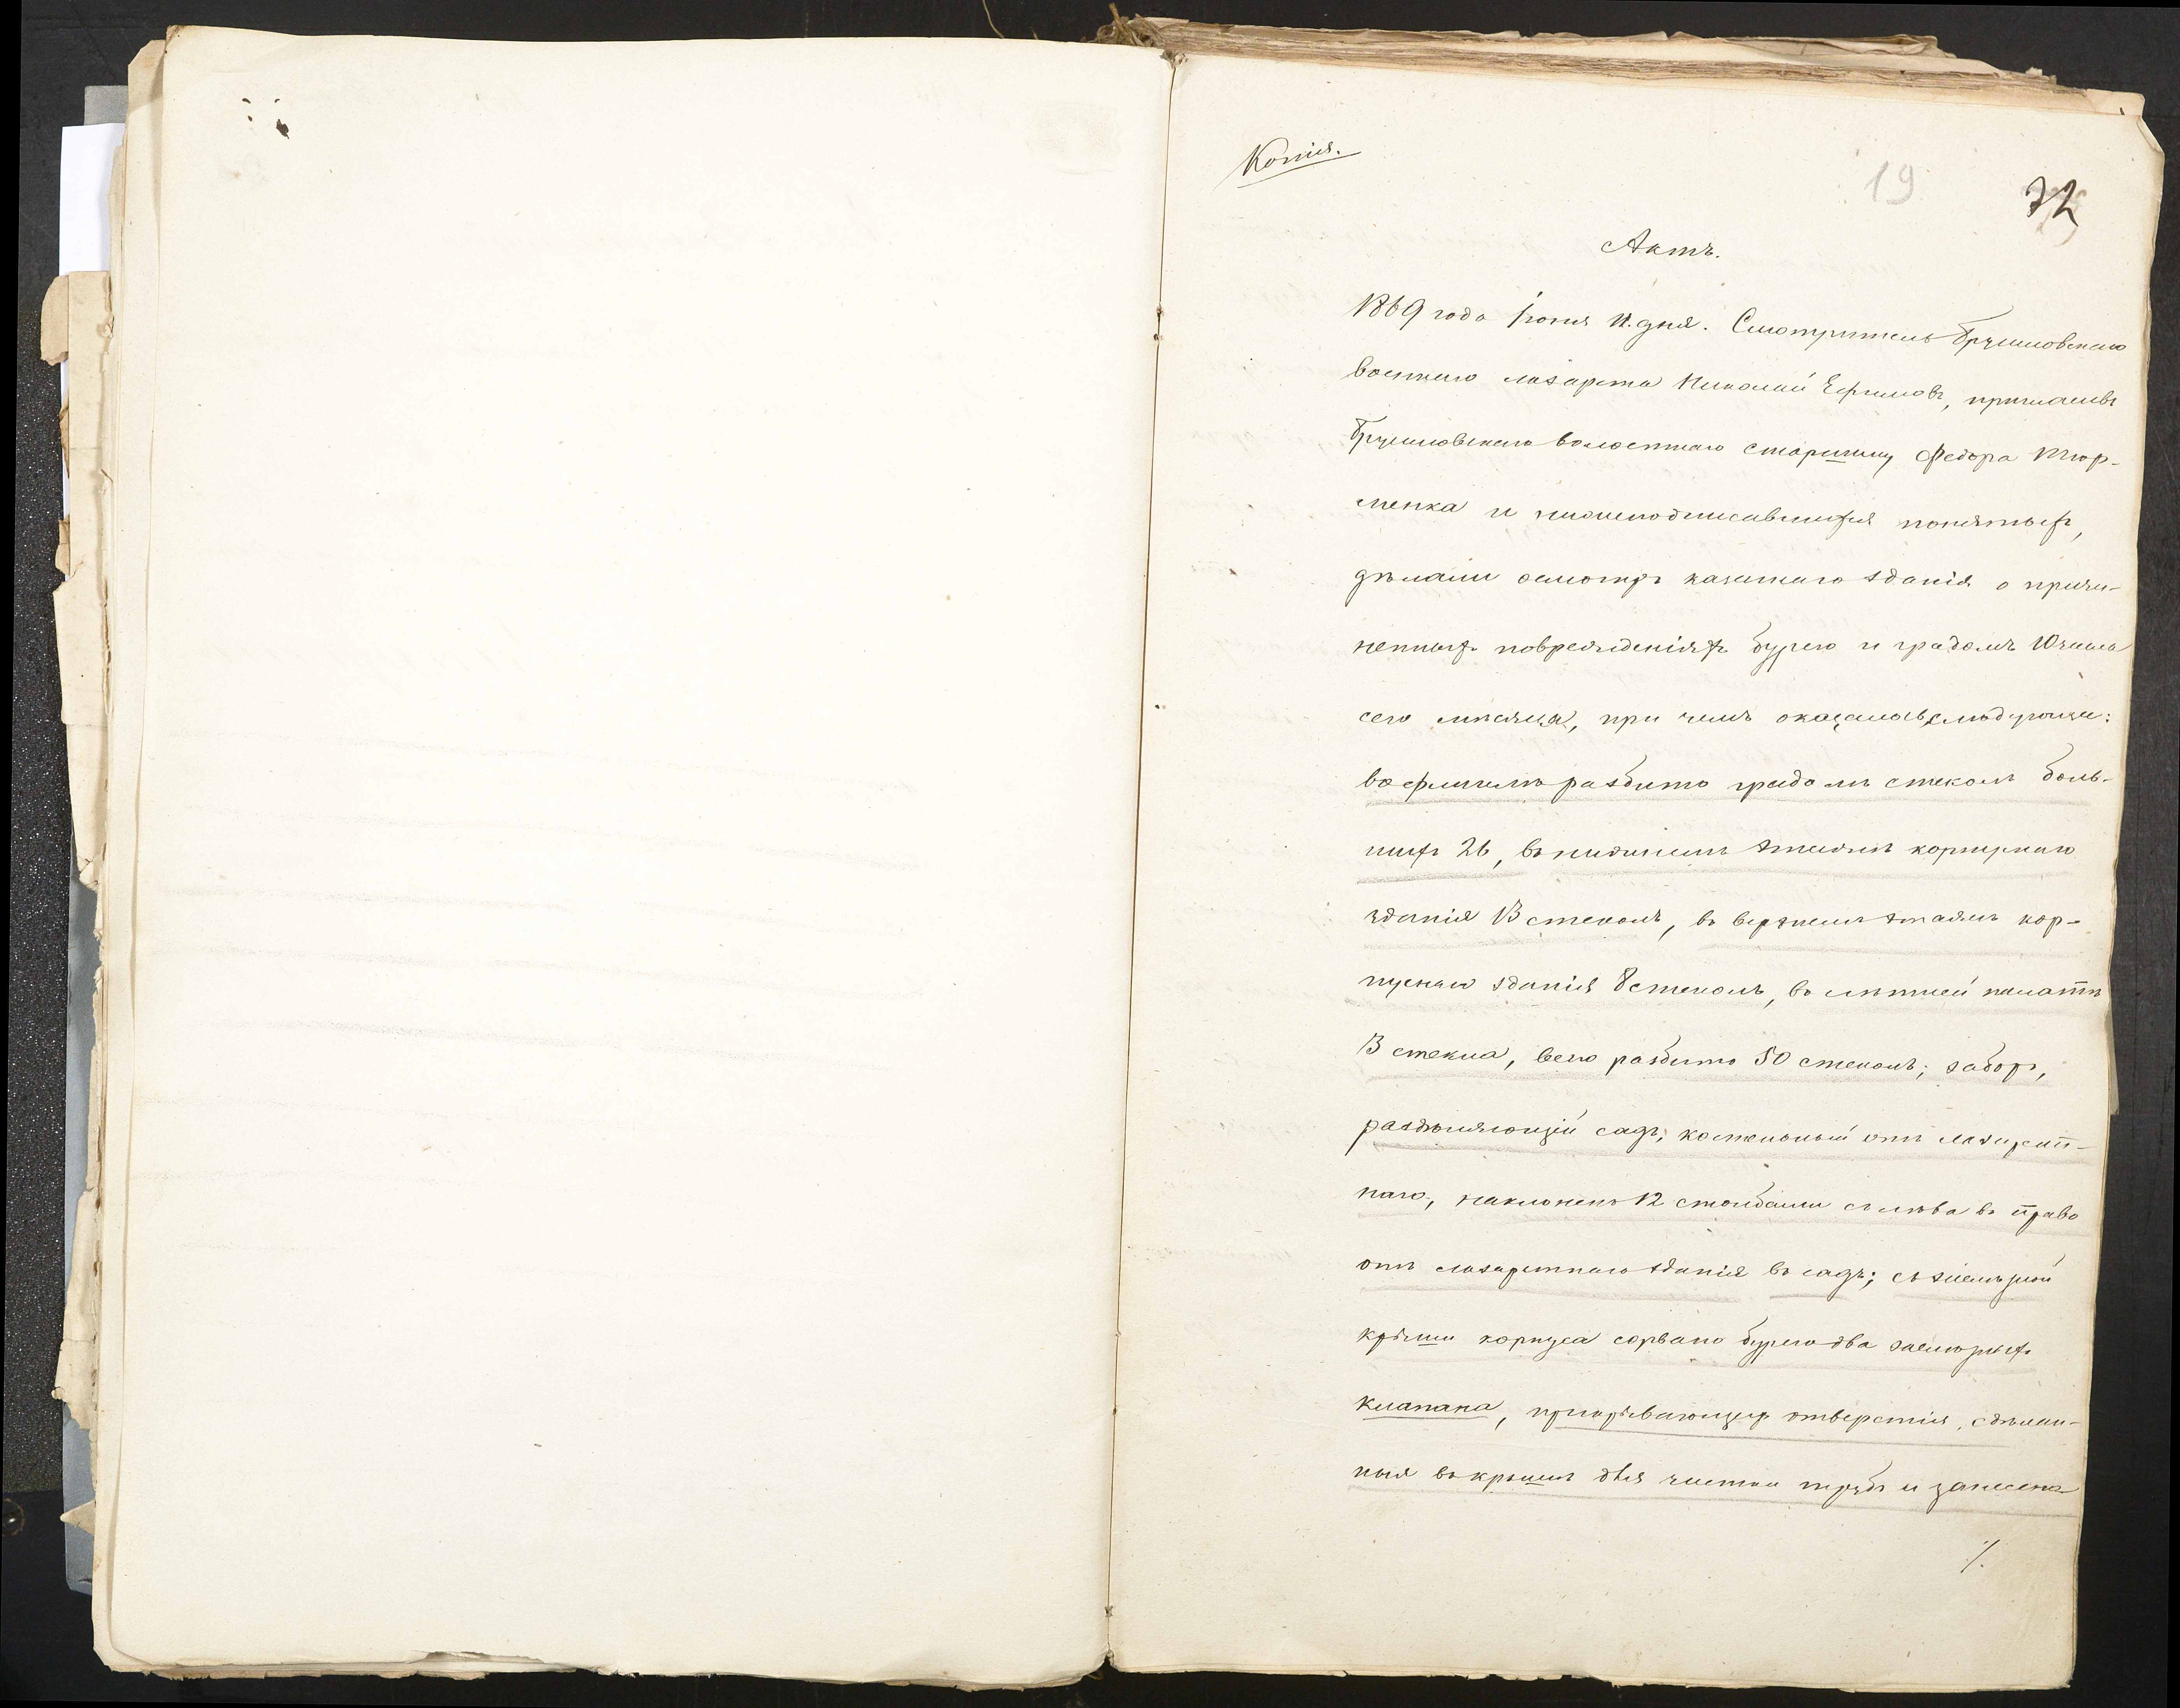 Копія.
19
32
Актъ.
1869 года Іюня 11. дня. Смотритель Брусиловскаго
военнаго лазарета Николай Ефимовъ, пригласивъ
Брусиловскаго волостнаго старшину Федора
менка и нижеподписавшихся понятыхъ,
дѣлали осмотръ казеннаго зданія о причи-
ненныхъ поврежденіяхъ бурею и градомъ 10 числа
сего мѣсяца, при чемъ оказалось слѣдующее:
во флигелѣ разбито градомъ стеколъ боль-
шихъ 26, въ нижнемъ этажѣ корпуснаго
зданія 13 стеколъ, въ верхнемъ этажѣ кор-
пуснаго зданія 8 стеколъ, въ лѣтней палатѣ
3 стекла, всего разбито 50 стеколъ; заборъ,
раздѣляющій садъ, костельный отъ лазарет-
наго, наклоненъ 12 столбами съ лѣва въ право
отъ лазаретнаго зданія въ садъ; съ желѣзной
крыши корпуса сорвано бурею два
клапана, прикрывающихъ отверстія, сдѣлан-
ныя въ крышѣ для чистки трубъ и занесена
/.